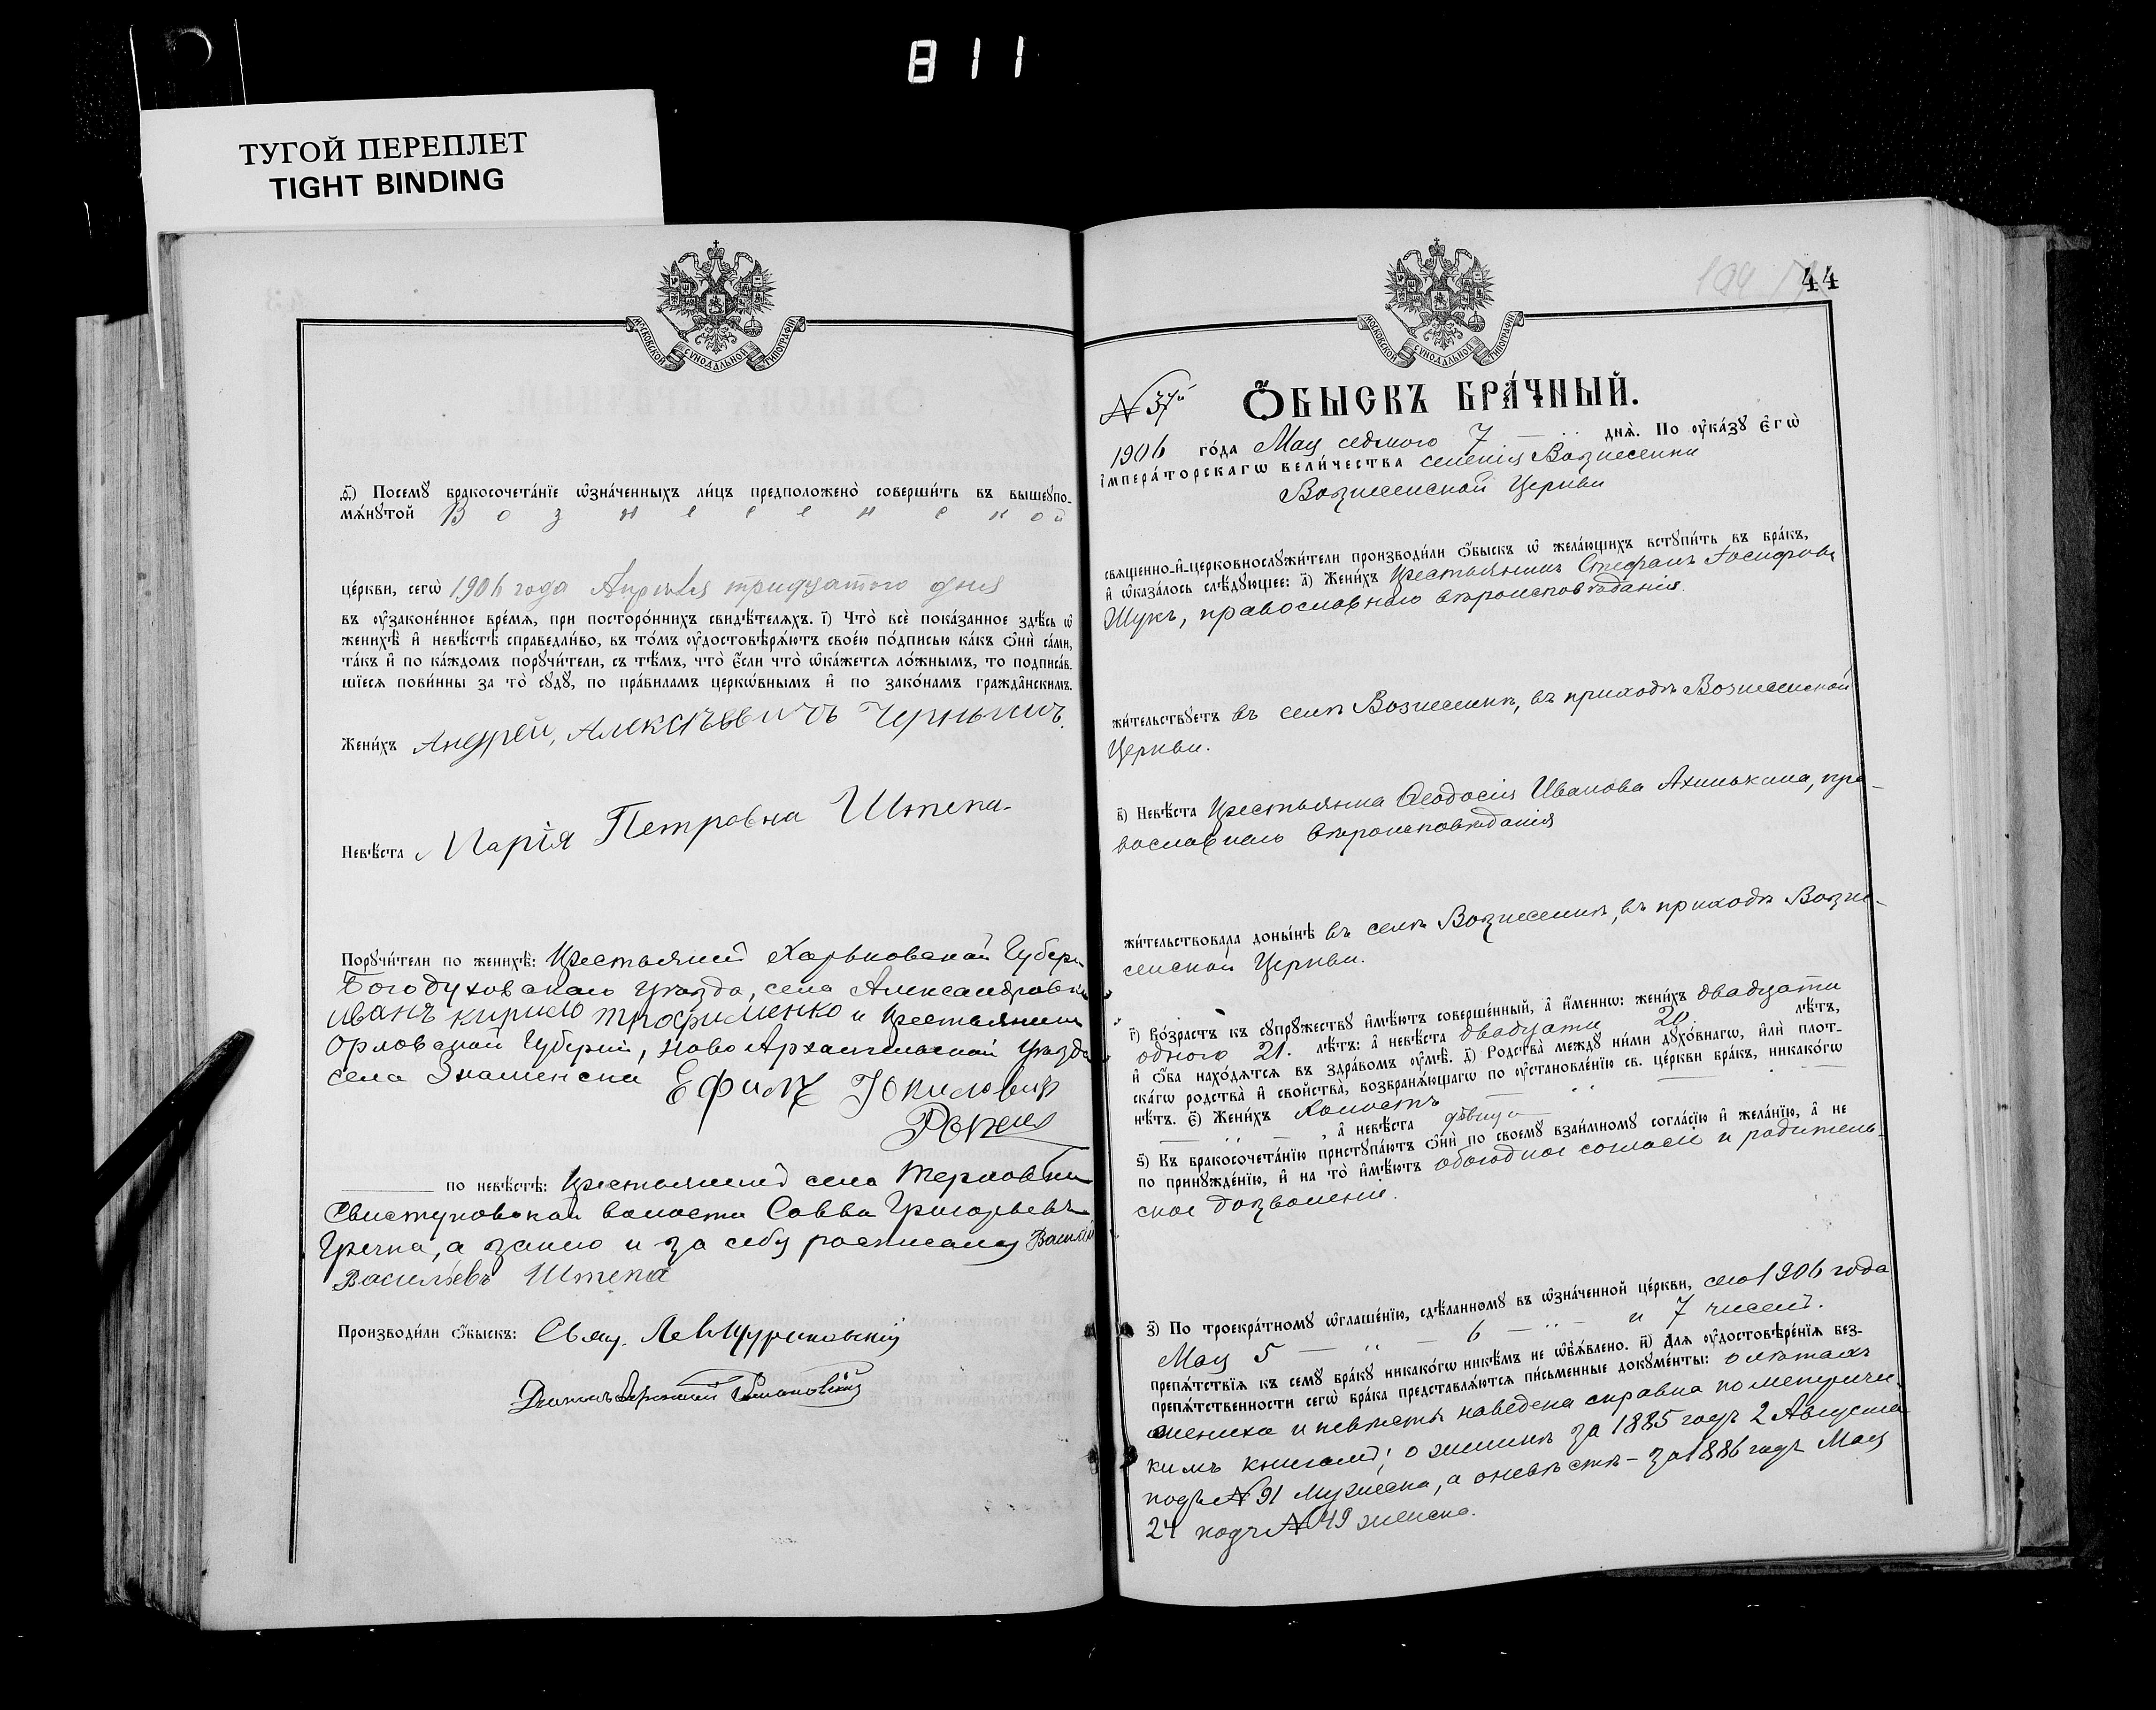 811
ТУГОЙ ПЕРЕПЛЕТ
TIGHT BINDING
МОСКОВСКОЙ СѴНОДАЛЬНОЙ ТИПОГРАФІИ
ѳ҃) Посемꙋ бракосочета́нїе ѡ҆зна́ченныхъ ли́цъ предположено̀ соверши́ть въ вышеꙋпо-
мѧ́нꙋтой Вознесенской
це́ркви, сегѡ̀ 1906 года Апрѣля тридцатого дня
въ ᲂу҆законе́нное вре́мѧ, при посторо́ннихъ свидѣ́телѧхъ. і҃) Что̀ всѐ пока́занное здѣ́сь ѡ҆
женихѣ̀ и҆ невѣ́стѣ справедли́во, въ то́мъ ᲂу҆достовѣрѧ́ютъ свое́ю по́дписью ка́къ ѻ҆нѝ са́ми,
та́къ и҆ по ка́ждомъ порꙋчи́тели, съ тѣ́мъ, что̀ є҆́сли что̀ ѡ҆ка́жетсѧ ло́жнымъ, то подписа́в-
шїесѧ пови́нны за то̀ сꙋдꙋ̀, по пра́виламъ церкѡ́внымъ и҆ по зако́намъ гражда̂нскимъ.
Жени́хъ Андрей, Алексѣевичъ
Невѣ́ста Марія Петровна Штепа.
Порꙋчи́тели по женихѣ̀: Крестьяниnъ Харьковской Губерн
Богодуховскаго Уѣзда, села Александровки
Иванъ Кирило Трофименко и Крестьянинъ
Орловской Губерніи, Ново Архангельской Уѣзда
села Знаменска Ефимъ
по невѣ́стѣ: Крестьянинъ села Терновки
Свистуновской волости Савва Григорьевъ
Гречка, а занего и за себя росписался Василій
Васильевъ Штепа
Производи́ли ѻ҆́быскъ: Свящ.
МОСКОВСКОЙ СѴНОДАЛЬНОЙ ТИПОГРАФІИ
44
№ 37й
Ѻ҆́БЫСКЪ БРА́ЧНЫЙ.
1906 го́да Мая седмого 7 днѧ̀. По ᲂу҆ка́зꙋ є҆гѡ̀
і҆мпера́торскагѡ вели́чества селенія Вознесенки
Вознесенской Церкви
свѧще́нно-и҆-церковнослꙋжи́тели производи́ли ѻ҆́быскъ ѡ҆ жела́ющихъ встꙋпи́ть въ бра́къ,
и҆ ѡ҆каза́лось слѣ́дꙋющее: а҃) Жени́хъ Крестьянинъ Стефанъ Іосифовъ
Щукъ, православного вѣроисповѣданія.
жи́тельствꙋетъ въ селѣ Вознесенкѣ, въ приходѣ Вознесенской
Церкви.
в҃) Невѣ́ста Крестьянка Ѳеодосія Иванова Ахинькина, пра-
вославного вѣроисповѣданія
жи́тельствовала доны́нѣ въ селѣ Вознесенкѣ, въ приходѣ Возне-
сенской Церкви.
г҃) Во́зрастъ къ сꙋпрꙋ́жествꙋ и҆мѣ́ютъ соверше́нный, а҆ и҆́меннѡ: жени́хъ двадцати
одного 21. лѣ́тъ: а҆ невѣ́ста двадцати 20. лѣ́тъ,
и҆ ѻ҆́ба нахо́дѧтсѧ въ здра́вомъ ᲂу҆мѣ̀. д҃) Родства̀ междꙋ̀ ни́ми дꙋхо́внагѡ, и҆лѝ пло́т-
скагѡ родства̀ и҆ сво́йства, возбранѧ́ющагѡ по ᲂу҆становле́нїю св. це́ркви бра́къ, никако́гѡ
нѣ́тъ. є҃) Жени́хъ холостъ
, а҆ невѣ́ста дѣвица
ѕ҃) Къ бракосочета́нїю пристꙋпа́ютъ ѻ҆нѝ по своемꙋ̀ взаи́мномꙋ согла́сїю и҆ жела́нїю, а҆ не
по принꙋжде́нїю, и҆ на то̀ и҆мѣ́ютъ обоюдное согласіе и родитель-
ское дозволеніе.
з҃) По троекра́тномꙋ ѡ҆глаше́нїю, сдѣ́ланномꙋ въ ѡ҆зна́ченной це́ркви, сего 1906 года
Мая 5 — 6 — и 7 чиселъ.
препѧ́тствїѧ къ семꙋ̀ бра́кꙋ никако́гѡ никѣ́мъ не ѡ҆б̾ѧ́влено. и҃) Длѧ ᲂу҆достовѣре́нїѧ без-
препѧ́тственности сегѡ̀ бра́ка представлѧ́ютсѧ пи́сьменные докꙋме́нты: о лѣтахъ
жениха и невѣсты наведена справка по метриче-
кимъ книгамъ; о женихѣ за 1885 годъ 2 Августа
подъ № 91 мужеска, а о невѣстѣ – за 1886 годъ Мая
24 подъ № 49 женска.